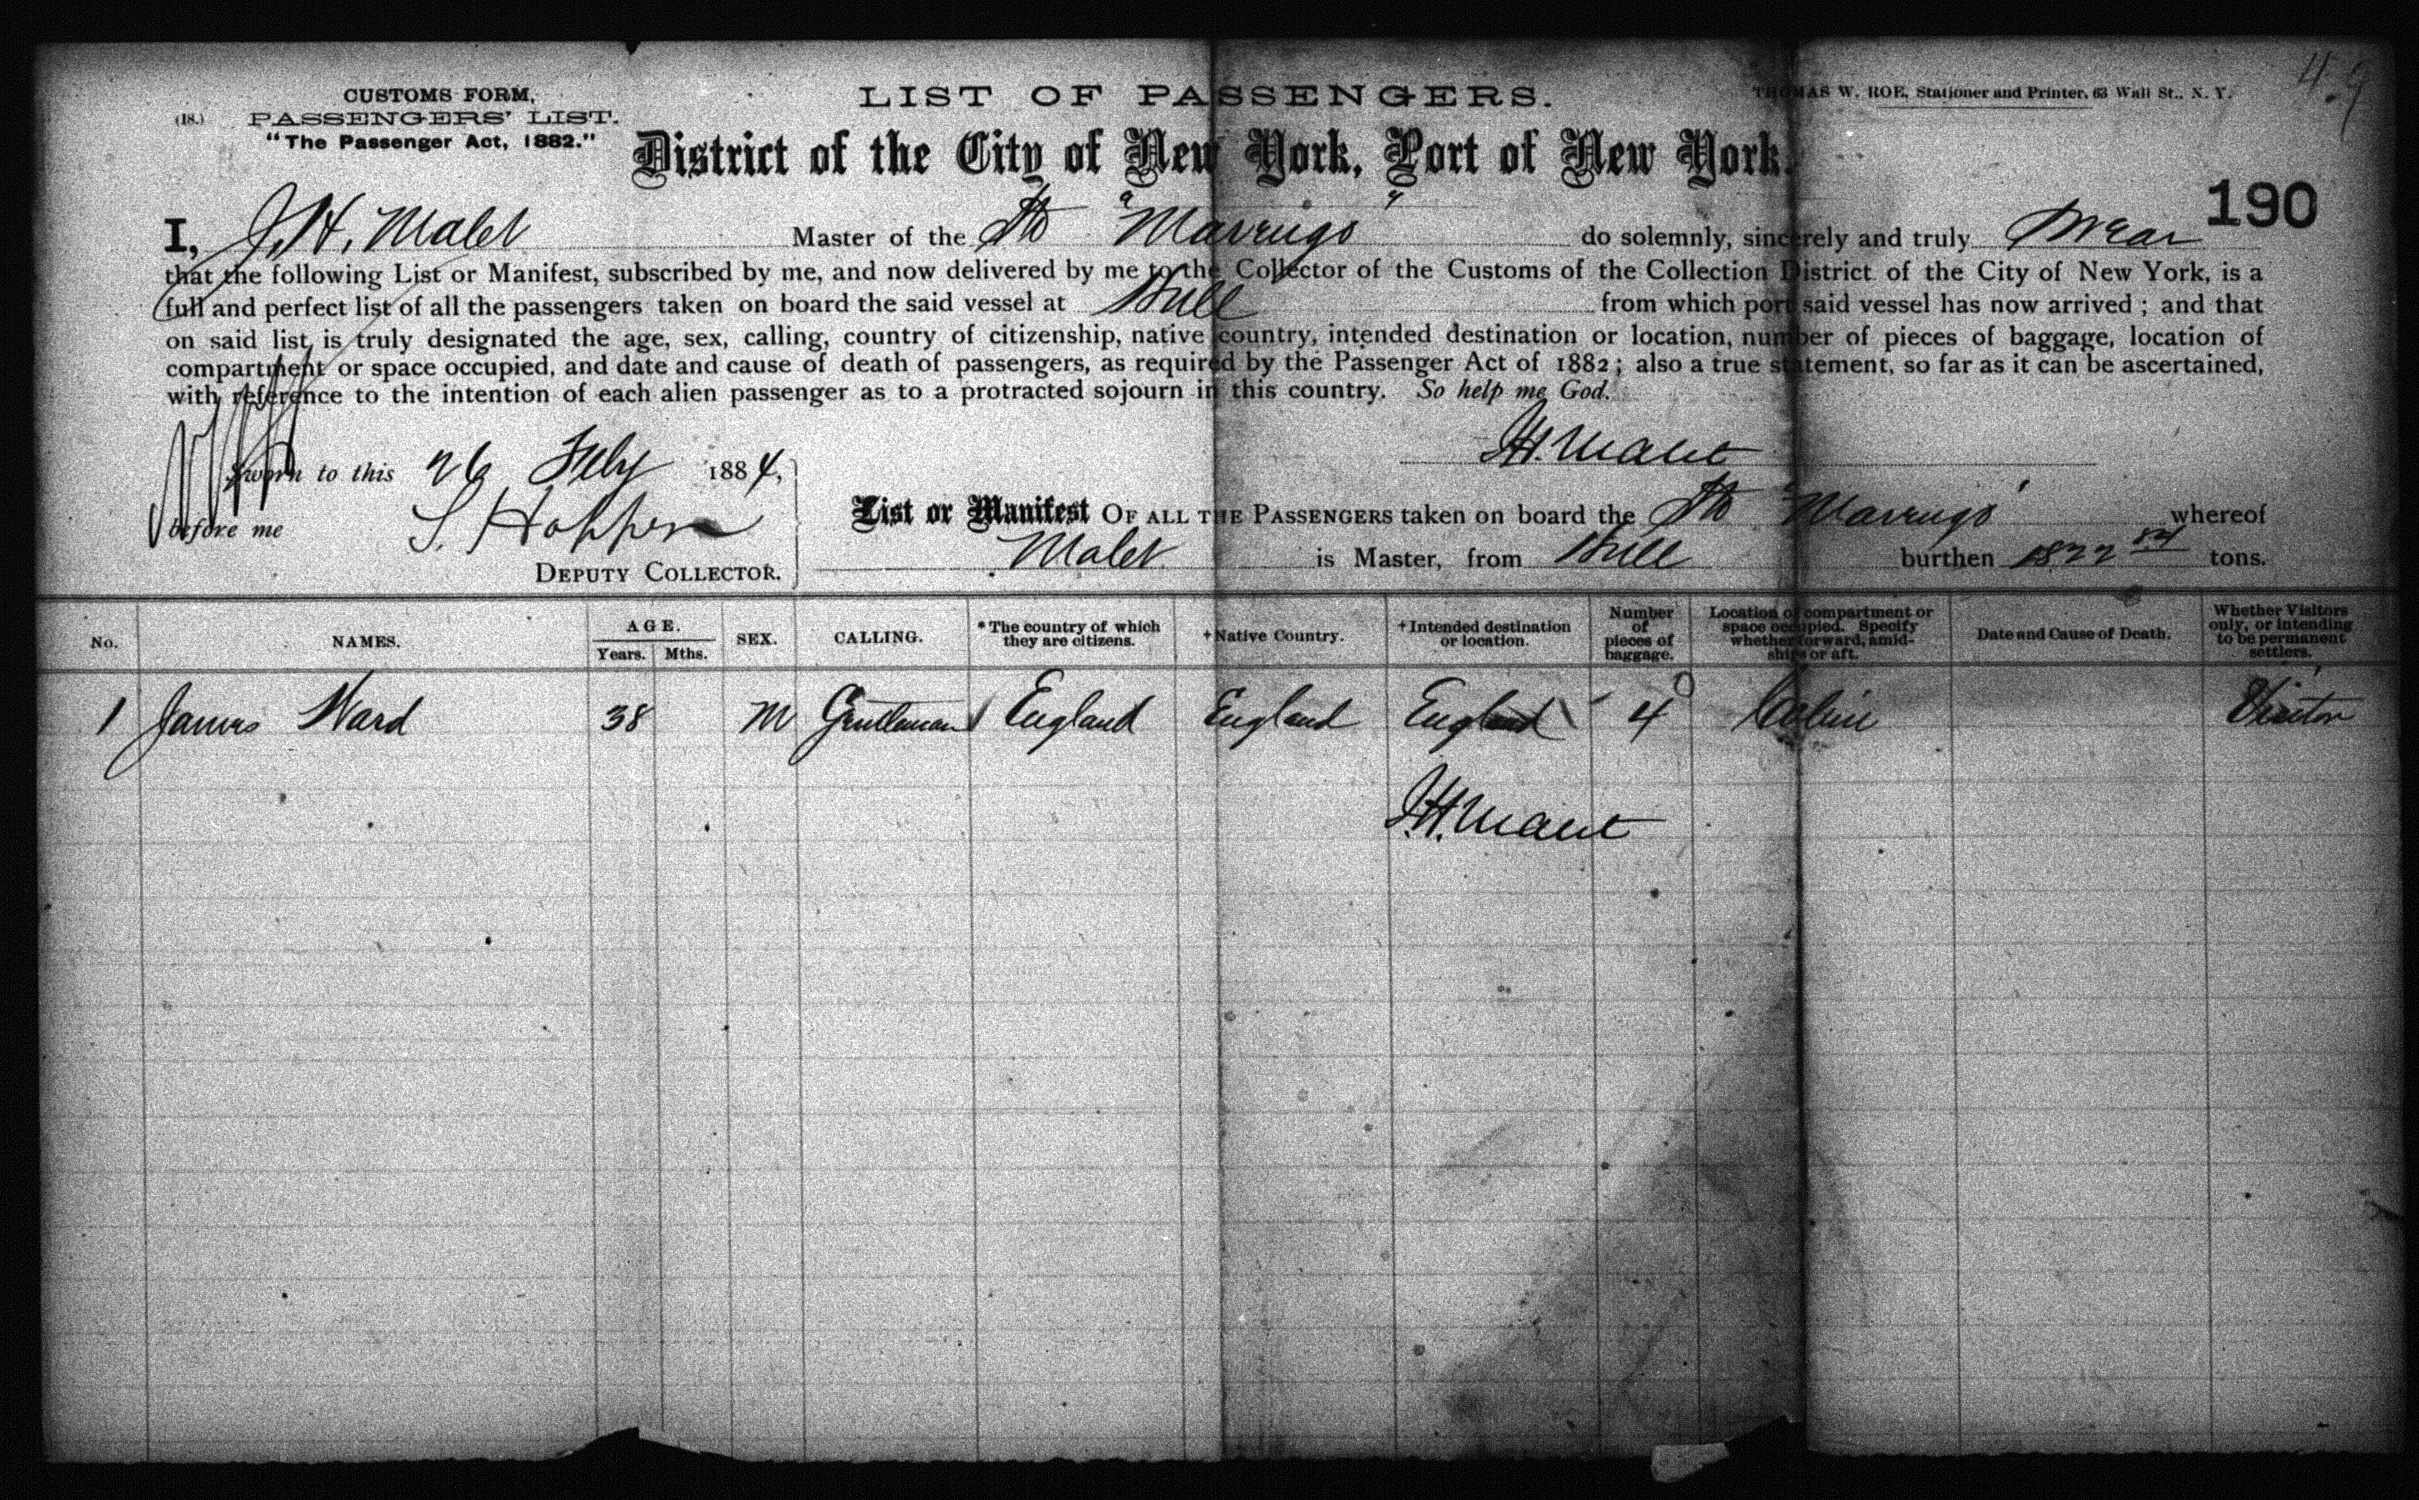 CUSTOMS FORM,
(18.) PASSENGERS' LIST.
"The Passenger Act, 1882."
LIST OF PASSENGERS.
THOMAS W. ROE, Stationer and Printer, 63 Wall St., N. Y.
District of the City of New York, Port of New York.
190
I, J. H. Malet Master of the Str "Marengo" do solemnly, sincerely and truly swear
that the following List or Manifest, subscribed by me, and now delivered by me to the Collector of the Customs of the Collection District of the City of New York, is a
full and perfect list of all the passengers taken on board the said vessel at Hull from which port said vessel has now arrived; and that
on said list is truly designated the age, sex, calling, country of citizenship, native country, intended destination or location, number of pieces of baggage, location of
compartment or space occupied, and date and cause of death of passengers, as required by the Passenger Act of 1882; also a true statement, so far as it can be ascertained,
with reference to the intention of each alien passenger as to a protracted sojourn in this country. So help me God.
J.H. Malet
Sworn to this 26 July 1884,
before me S. Hopper
DEPUTY COLLECTOR.
List or Manifest OF ALL THE PASSENGERS taken on board the Str "Marengo" whereof
Malet is Master, from Hull burthen tons.
No. NAMES. AGE. Years. Mths. SEX. CALLING. *The country of which they are citizens. +Native Country. +Intended destination or location. Number of pieces of baggage. Location of compartment or space occupied. Specify whether forward, amidships or aft. Date and Cause of Death. Whether Visitors only, or intending to be permanent settlers.
1 James Ward 38 M Gentleman England England England 4 Cabin Visitor
J.H. Malet